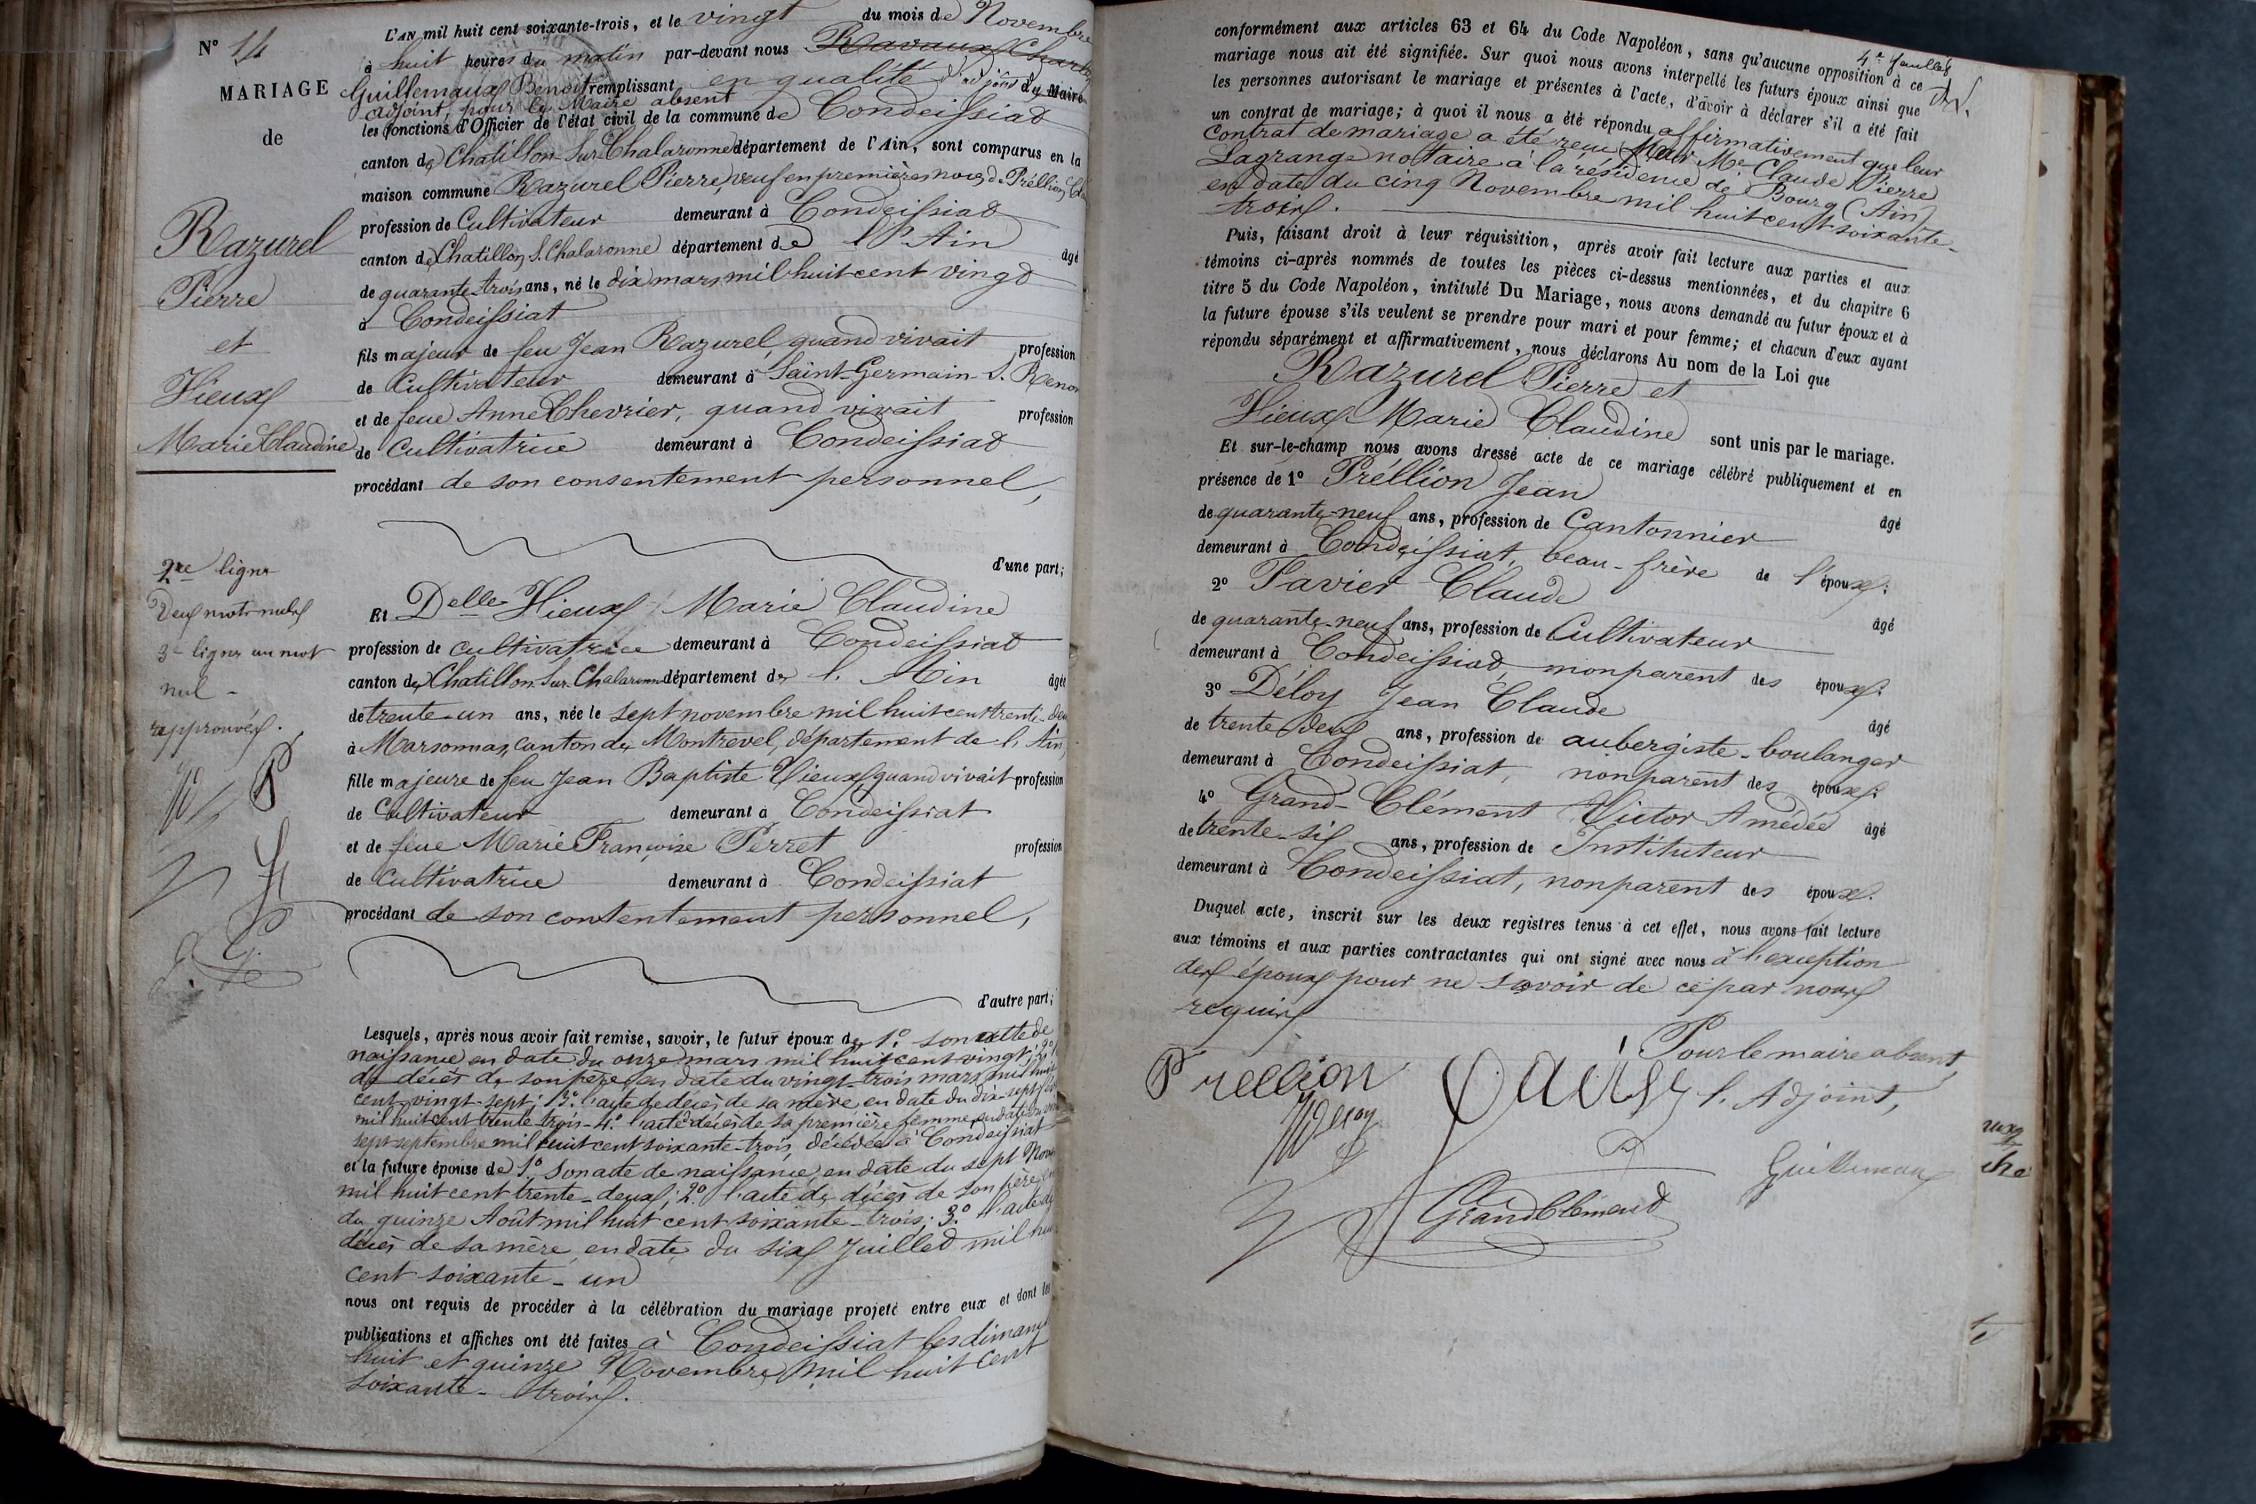 N° 14
MARIAGE
de
Razurel
Pierre
et
Vieux
Marie Claudine
2me ligne
Deux mots nuls
3e ligne un mot
nul -
approuvés.
L'AN mil huit cent soixante-trois, et le vingt du mois de Novembre
à huit heures du matin par-devant nous Ravaux Charles
Guillemaux Benoit remplissant en qualité d'adjoint du Maire
adjoint, pour le Maire absent
les fonctions d'Officier de l'état civil de la commune de Condeissiat
canton de Chatillon-Sur-Chalaronne département de l'Ain, sont comparus en la
maison commune Razurel Pierre, veuf en premières noces de Préllion
profession de Cultivateur demeurant à Condeissiat
canton de Chatillon S. Chalaronne département de l'Ain âgé
de quarante-trois ans, né le dix mars mil huit cent vingt
à Condeissiat
fils majeur de feu Jean Razurel, quand vivait profession
de Cultivateur demeurant à Saint-Germain-S. Renon
et de feue Anne Chevrier, quand vivait profession
de Cultivatrice demeurant à Condeissiat
procédant de son consentement personnel,
d'une part;
Et Delle Vieux Marie Claudine
profession de cultivatrice demeurant à Condeissiat
canton de Chatillon-Sur-Chalaronne département de l'Ain âgée
de trente-un ans, née le sept novembre mil huit cent trente-deux
à Marsonnas, canton de Montrevel, département de l'Ain,
fille majeure de feu Jean Baptiste Vieux, quand vivait profession
de Cultivateur demeurant à Condeissiat
et de feue Marie Françoise Perret profession
de Cultivatrice demeurant à Condeissiat
procédant de son consentement personnel,
d'autre part;
Lesquels, après nous avoir fait remise, savoir, le futur époux de 1° son acte de
naissance en date du onze mars mil huit cent vingt; 2°
de décès de son père, en date du vingt-trois mars mil huit
cent-vingt-sept; 3° l'acte de décès de sa mère en date du dix-sept
mil huit cent trente trois - 4° l'acte de décès de sa première femme, en date du
sept septembre mil huit cent soixante-trois, décédée à Condeissiat
et la future épouse de 1° son acte de naissance, en date du sept Nov
mil huit cent trente-deux; 2° l'acte de décès de son père, en
du quinze Août mil huit cent soixante-trois; 3° l'acte de
décès de sa mère, en date du six Juillet mil huit
cent soixante-un
nous ont requis de procéder à la célébration du mariage projeté entre eux et dont les
publications et affiches ont été faites à Condeissiat les dimanches
huit et quinze Novembre mil huit cent
soixante-trois.
4e feuillet
conformément aux articles 63 et 64 du Code Napoléon, sans qu'aucune opposition à ce
mariage nous ait été signifiée. Sur quoi nous avons interpellé les futurs époux ainsi que
les personnes autorisant le mariage et présentes à l'acte, d'avoir à déclarer s'il a été fait
un contrat de mariage; à quoi il nous a été répondu affirmativement que leur
Contrat de mariage a été reçu par Me Claude Pierre
Lagrange notaire à la résidence de Bourg (Ain)
en date du cinq Novembre mil huit cent soixante-
trois.
Puis, faisant droit à leur réquisition, après avoir fait lecture aux parties et aux
témoins ci-après nommés de toutes les pièces ci-dessus mentionnées, et du chapitre 6
titre 5 du Code Napoléon, intitulé Du Mariage, nous avons demandé au futur époux et à
la future épouse s'ils veulent se prendre pour mari et pour femme; et chacun d'eux ayant
répondu séparément et affirmativement, nous déclarons Au nom de la Loi que
Razurel Pierre et
Vieux Marie Claudine sont unis par le mariage.
Et sur-le-champ nous avons dressé acte de ce mariage célébré publiquement et en
présence de 1° Préllion Jean âgé
de quarante-neuf ans, profession de Cantonnier
demeurant à Condeissiat, beau-frère de l'époux;
2° Favier Claude âgé
de quarante-neuf ans, profession de Cultivateur
demeurant à Condeissiat, non parent des époux;
3° Déloy Jean Claude âgé
de trente deux ans, profession de aubergiste-boulanger
demeurant à Condeissiat, non parent des époux;
4° Grand-Clément Victor Amédée âgé
de trente-six ans, profession de Instituteur
demeurant à Condeissiat, non parent des époux.
Duquel acte, inscrit sur les deux registres tenus à cet effet, nous avons fait lecture
aux témoins et aux parties contractantes qui ont signé avec nous à l'exception
des époux pour ne savoir de ce par nous
requis
Pour le maire absent,
l'Adjoint,
Prellion
Deloy
Guillemaux
GrandClément